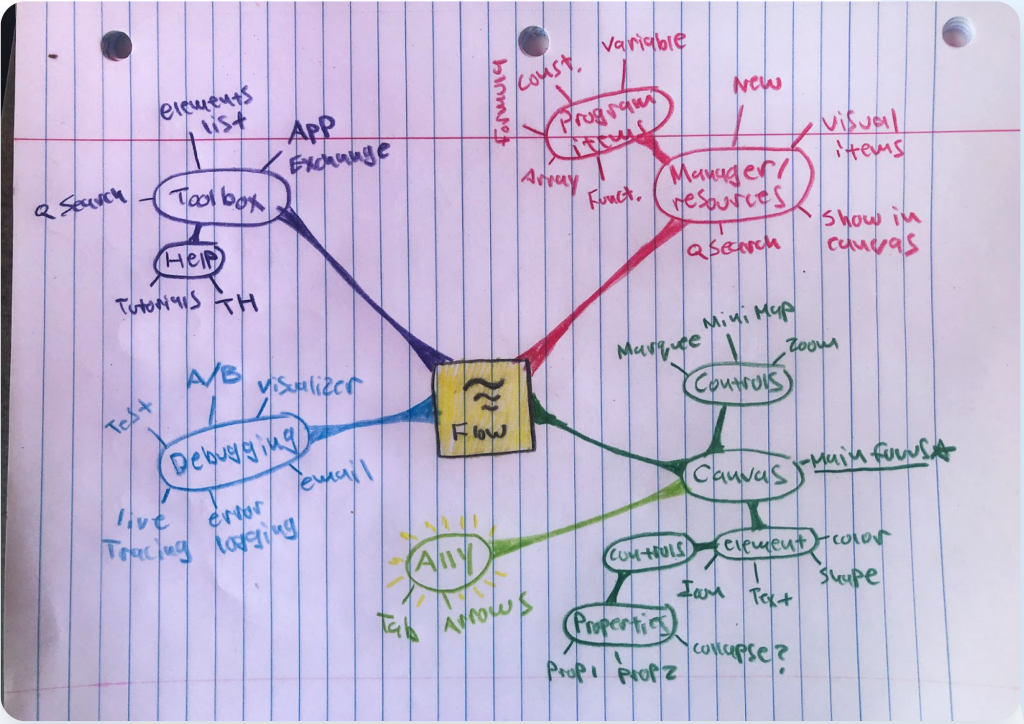 elements
list
App
Exchange
Search
Toolbox
Help
Tutorials
TH
Formula
Const.
Variable
Program
items
Array
Funct.
New
Visual
items
Manager/
resources
Search
Show in
canvas
A/B
visualizer
Test
Debugging
email
live
Tracing
error
logging
Flow
Marquee
Mini Map
Zoom
Controls
Canvas
Main Focus
A11Y
Tab
Arrows
controls
element
color
Shape
Icon
Text
Properties
Prop1
prop2
collapse?